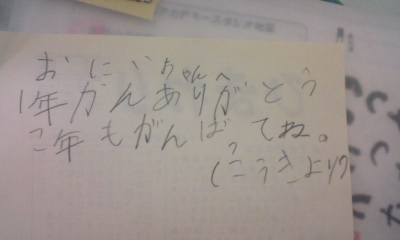 おにいちゃんへ
1年かんありがとう
こ年もがんばってね。
(こうきより)